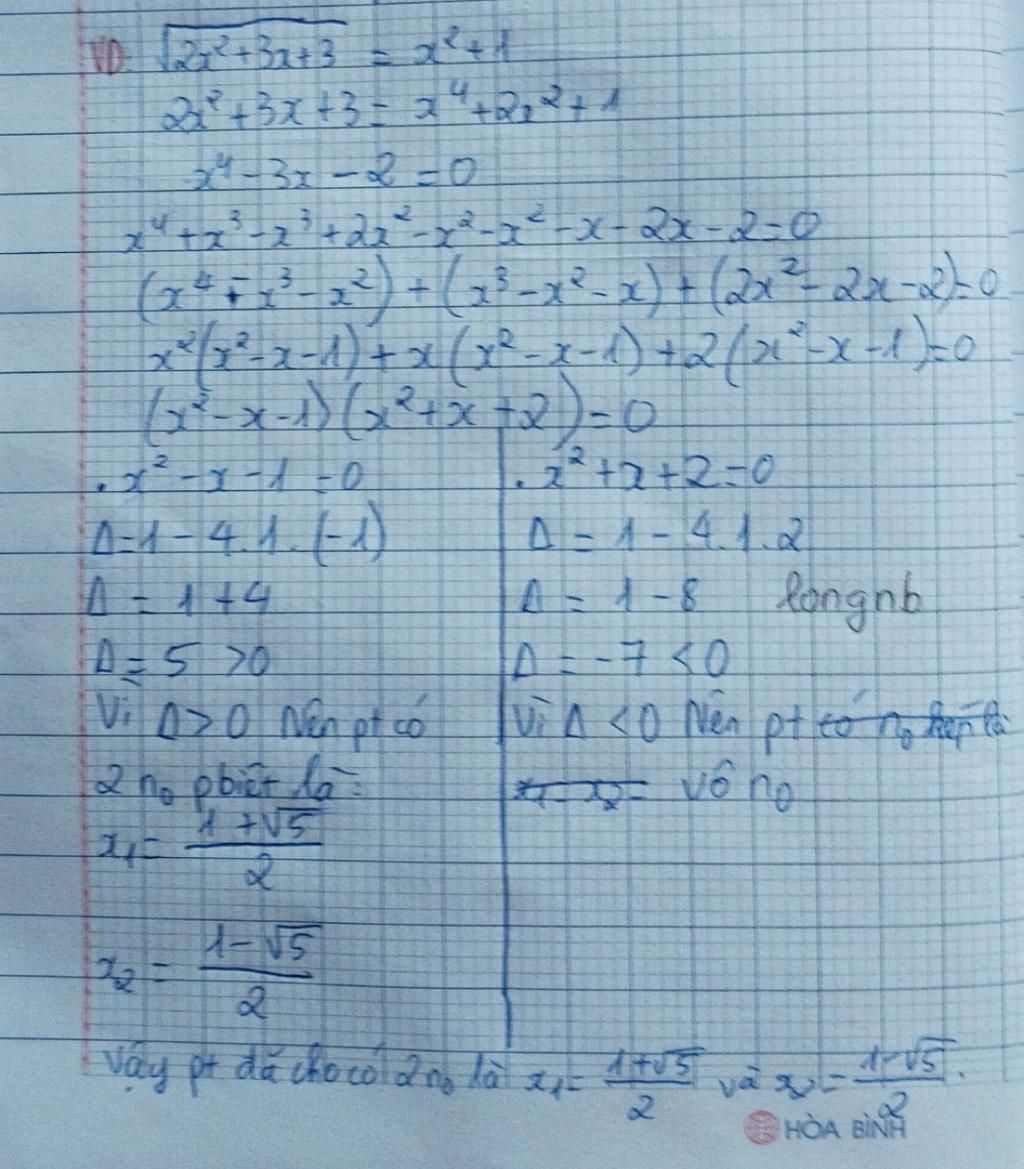 VD: √(2x²+3x+3) = x²+1
2x²+3x+3 = x⁴+2x²+1
x⁴-3x-2=0
x⁴+x³-x³+2x²-x²-x²-x-2x-2=0
(x⁴-x³-x²)+(x³-x²-x)+(2x²-2x-2)=0
x²(x²-x-1)+x(x²-x-1)+2(x²-x-1)=0
(x²-x-1)(x²+x+2)=0
. x²-x-1=0
Δ=1-4.1.(-1)
Δ=1+4
Δ=5>0
Vì Δ>0 Nên pt có
2 no pbiệt là:
x₁= (1+√5)/2
x₂= (1-√5)/2
. x²+x+2=0
Δ=1-4.1.2
Δ=1-8 longnb
Δ=-7<0
Vì Δ<0 Nên pt có no
vô no
Vậy pt đã cho có 2 no là x₁= (1+√5)/2 và x₂= (1-√5)/2.
HÒA BÌNH